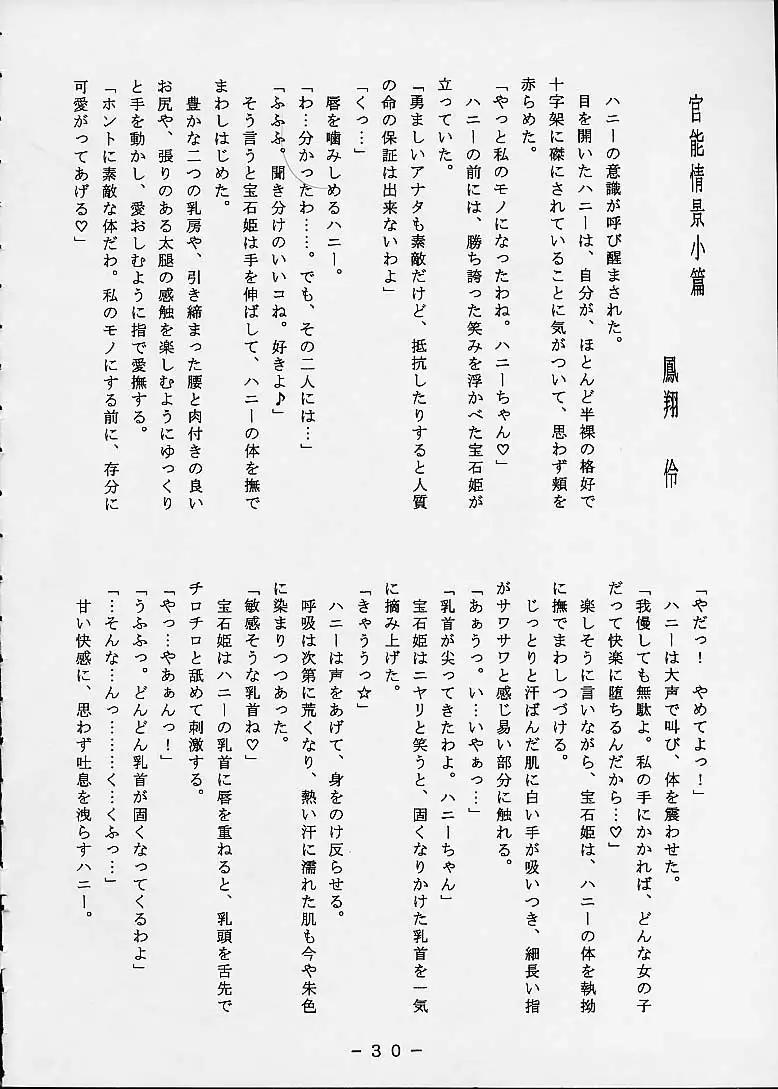 官能情景小篇
鳳翔　伶
ハニーの意識が呼び醒まされた。
目を開いたハニーは、自分が、ほとんど半裸の格好で
十字架に磔にされていることに気がついて、思わず頬を
赤らめた。
「やっと私のモノになったわね。ハニーちゃん♡」
ハニーの前には、勝ち誇った笑みを浮かべた宝石姫が
立っていた。
「勇ましいアナタも素敵だけど、抵抗したりすると人質
の命の保証は出来ないわよ」
「くっ…」
唇を噛みしめるハニー。
「わ…分かったわ……。でも、その二人には…」
「ふふふ。聞き分けのいいコね。好きよ♪」
そう言うと宝石姫は手を伸ばして、ハニーの体を撫で
まわしはじめた。
豊かな二つの乳房や、引き締まった腰と肉付きの良い
お尻や、張りのある太腿の感触を楽しむようにゆっくり
と手を動かし、愛おしむように指で愛撫する。
「ホントに素敵な体だわ。私のモノにする前に、存分に
可愛がってあげる♡」
「やだっ！　やめてよっ！」
ハニーは大声で叫び、体を震わせた。
「我慢しても無駄よ。私の手にかかれば、どんな女の子
だって快楽に堕ちるんだから…♡」
楽しそうに言いながら、宝石姫は、ハニーの体を執拗
に撫でまわしつづける。
じっとりと汗ばんだ肌に白い手が吸いつき、細長い指
がサワサワと感じ易い部分に触れる。
「あぁうっ。い…いやぁっ…」
「乳首が尖ってきたわよ。ハニーちゃん」
宝石姫はニヤリと笑うと、固くなりかけた乳首を一気
に摘み上げた。
「きゃううっ☆」
ハニーは声をあげて、身をのけ反らせる。
呼吸は次第に荒くなり、熱い汗に濡れた肌も今や朱色
に染まりつつあった。
「敏感そうな乳首ね♡」
宝石姫はハニーの乳首に唇を重ねると、乳頭を舌先で
チロチロと舐めて刺激する。
「やっ…やあぁんっ！」
「うふふっ。どんどん乳首が固くなってくるわよ」
「…そんな…んっ………く…くふっ…」
甘い快感に、思わず吐息を洩らすハニー。
－３０－